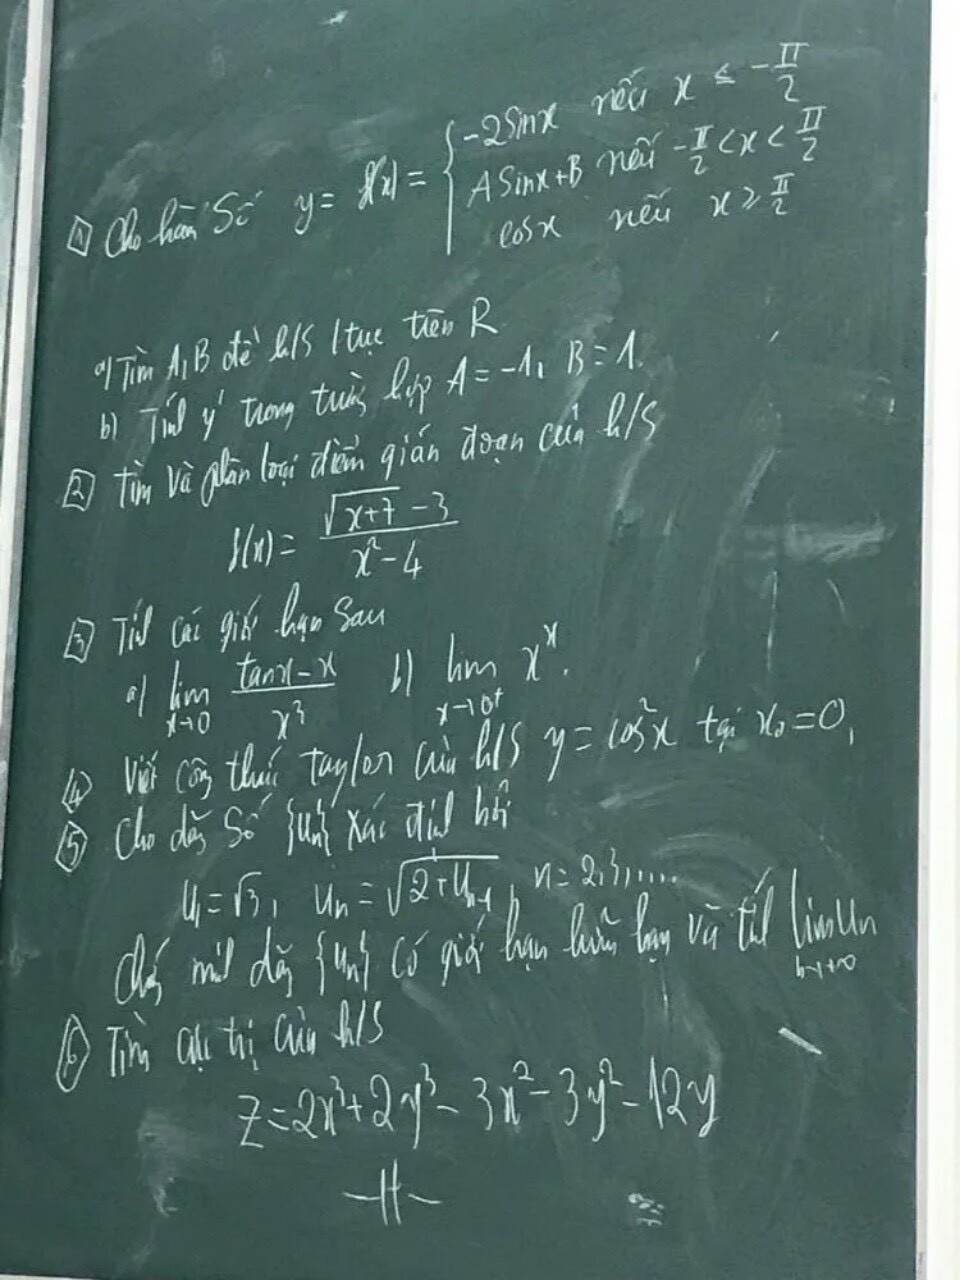 1 Cho hàm số y = f(x) = { -2sinx nếu x ≤ -π/2
Asinx+B nếu -π/2 < x < π/2
cosx nếu x ≥ π/2
a) Tìm A, B để h/s l/tục trên R
b) Tính y' trong trường hợp A = -1, B = 1.
2 Tìm và phân loại điểm gián đoạn của h/s
f(x) = (√(x+7) - 3)/(x² - 4)
3 Tính các giới hạn sau
a) lim x→0 (tanx - x)/x³ b) lim x→0⁺ x^x.
4 Viết công thức taylor của h/s y = cos²x tại x₀ = 0,
5 Cho dãy số {uₙ} xác định bởi
u₁ = √3, uₙ = √(2+uₙ₋₁), n = 2,3,....
Chứng minh dãy {uₙ} có giới hạn hữu hạn và tính lim uₙ n→+∞
6 Tìm cực trị của h/s
z = 2x³ + 2y³ - 3x² - 3y² - 12y